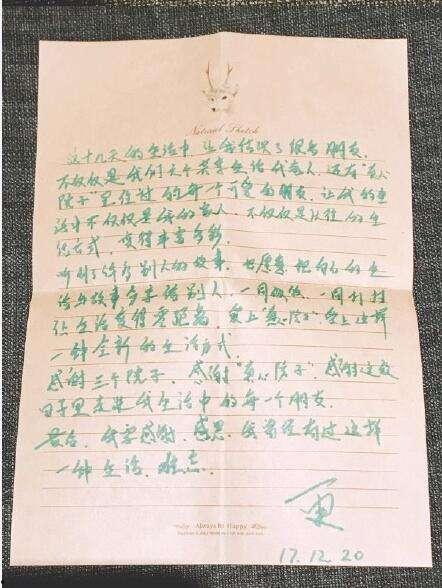 Natural Sketch
这十几天的生活中，让我结识了很多朋友，
不仅仅是我们六个共享生活代言人，还有真心
院子里经过的每个可爱的朋友，让我的生
活中不仅仅是我的家人，不仅仅是以往的生
活方式，变得丰富多彩。
听到了许多别人的故事，也愿意把自己的生
活与故事分享给别人，一同
让生活变得，爱上"真心院子"爱上这样
一种全新的生活方式。
感谢三个院子，感谢"真心院子"，感谢这段
日子里走进我生活中的每个朋友。
最后，我要感谢，感恩，我曾经有过这样
一种生活，难忘。
17.12.20
Always be Happy